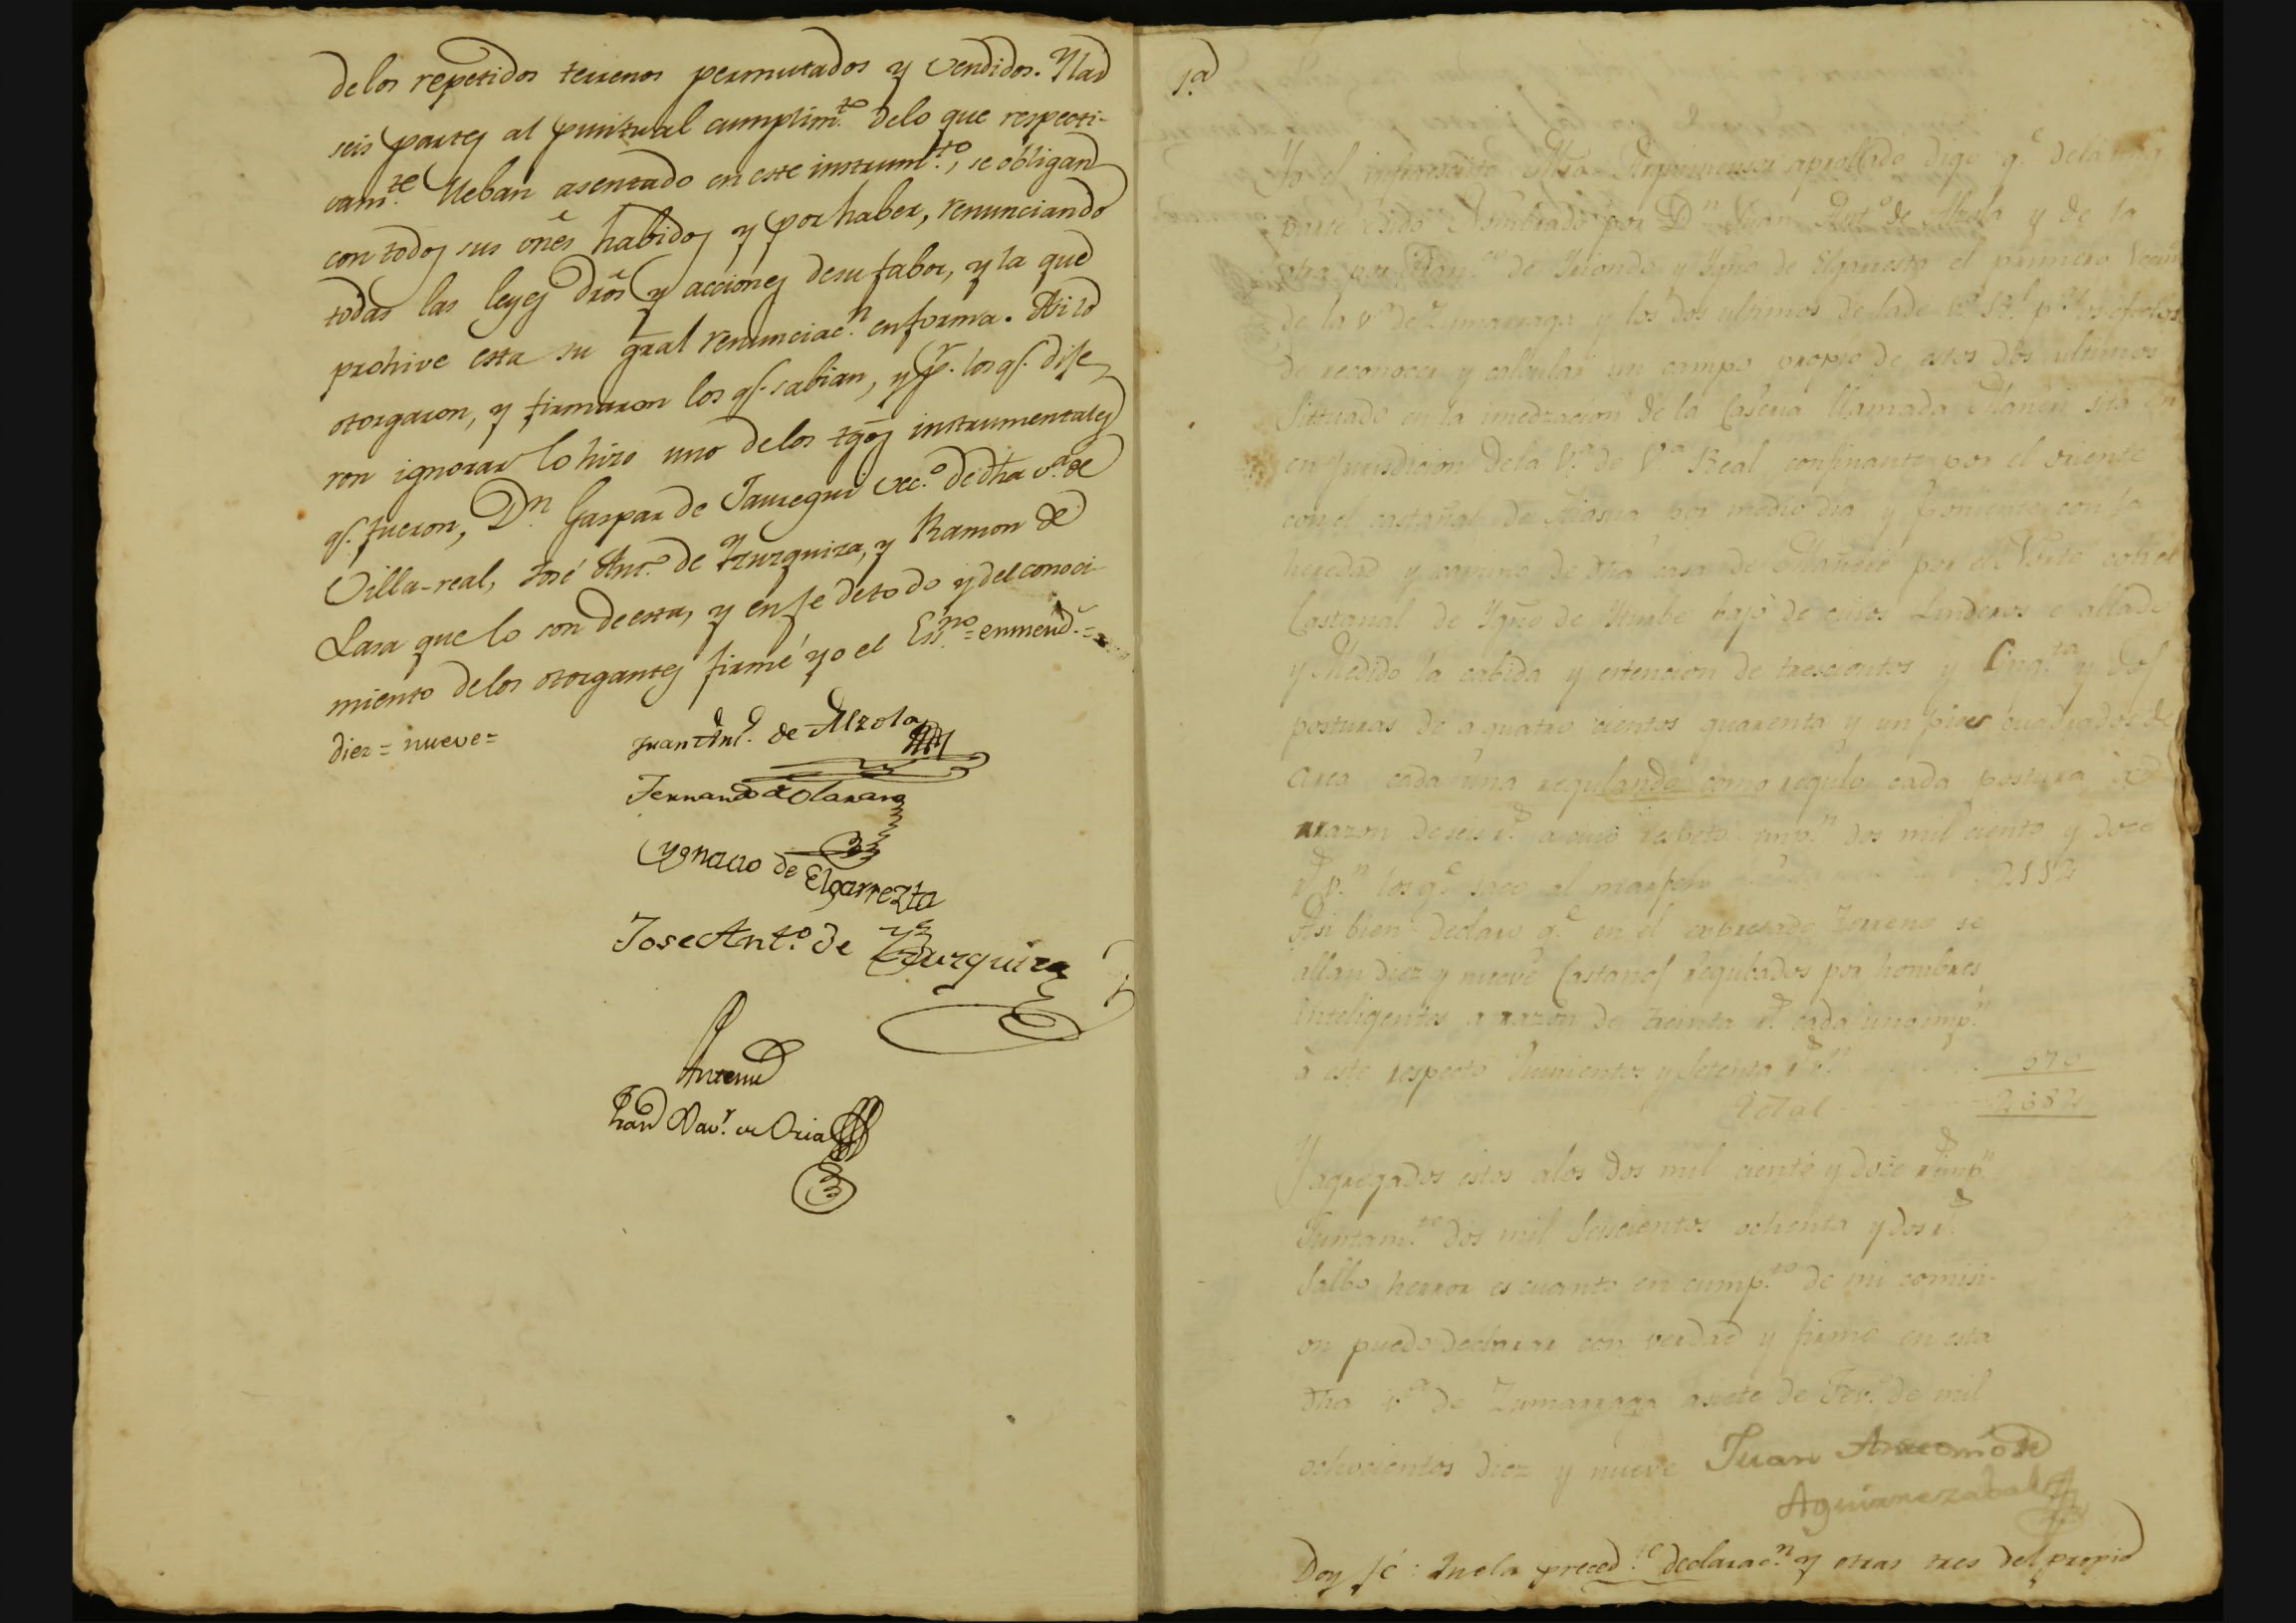 de los repetidos terrenos permutados y vendidos. Y las
seis partes al puntual cumplim.to delo que respecti-
vam.te lleban asentado en este instrum.to, se obligan
con todos sus vnẽs habidos y por haber, renunciando
todas las leyes drõs y acciones de su fabor, y la que
prohive esta su gral renunciac.n en forma. Asi lo
otorgaron, y firmaron los q.e sabian, y p.r los q.e dije
ron ignorar lo hizo uno delos tgõs instrumentales
q.e fueron, D.n Gaspar de Jauregui vec.o de dha v.a de
Villa-real, José Ant.o de Yzurquiza, y Ramon de
Lasa que lo son de esta, y en fe de todo y del conoci-
miento delos otorgantes firmé yo el Ess.no = enmend.o =
diez = nueve =
Juan Ant.o de Alzola
Fernando de Olaran
Ygnacio de Elgarrezta
Jose Ant.o de Yzurquiza
Antemi
Fran.co Xav.r de Oria
1.a
Yo el infrascrito Mro Agrimensor aprobado digo q.e de la una
parte é sido Nombrado por D.n Juan Ant.o de Alzola y de la
otra por de Yriondo y Ygn.o de Elgarresta el primero Vecino
de la V.a de Zumarraga y los dos ultimos de la de V.a R.l p.a los efectos
de reconocer y calcular un campo propio de estos dos ultimos
Sittuado en la imediacion de la Caseria llamada sita en
en Jurisdicion dela V.a de V.a Real confinante por el oriente
con el castañal de por medio dia y Poniente con la
heredad y camino de dha casa de por el Norte con el
Castanal de Ygn.o de Yturbe bajo de cuios Linderos e allado
y Medido la cabida y estencion de trescientos y Cinq.ta y dos
posturas de a quatro cientos quarenta y un pies cuadrados de
area cada una regulando como regulo cada postura a
rrazon de seis r.s a cuio respeto imp.n dos mil ciento y doce
r.s v.n los q.e saco al marjen 2112
Asi bien declaro q.e en el expresado Terreno se
allan diez y nueve Castanos regulados por hombres
inteligentes a razon de treinta r.s cada uno imp.n
a este respecto Quinientos y Setenta r.s 570
Total 2,682
Y agregados estos alos dos mil ciento y doce r.s imp.n
Juntam.te dos mil Seiscientos ochenta y dos r.s
Salbo herror es cuanto en cump.to de mi comisi-
on puedo declarar con verdad y firmé en esta
dha v.a de Zumarraga a siete de Feb.o de mil
ochocientos diez y nueve Juan Antonio de
Aguirrezabal
Doy fé: Que la preced.te declarac.n y otras tres del propio